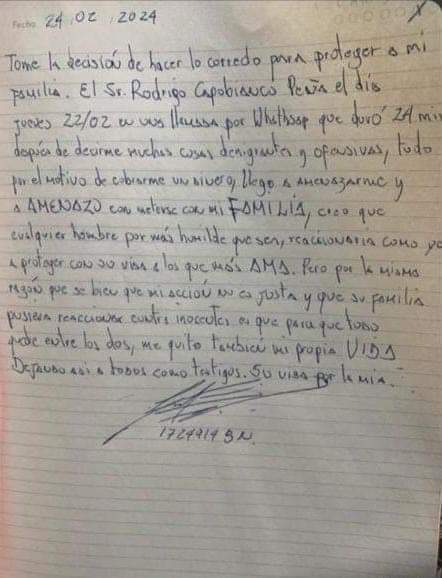 Fecha: 24, 02, 2024
Tome la decisión de hacer lo correcto para proteger a mi
familia. El Sr. Rodrigo Capobianco Peña el día
jueves 22/02 en una llamada por Whathsap que duró 24 min
después de decirme muchas cosas denigrantes y ofensivas, todo
por el motivo de cobrarme un dinero, llego a amenazarme y
a AMENAZO con meterse con mi FAMILIA, creo que
cualquier hombre por más humilde que sea, reaccionaria como yo
a proteger con su vida a los que más AMA. Pero por la misma
razón que se bien que mi acción no es justa y que su familia
pusiera reaccionar contra inocentes es que para que todo
quede entre los dos, me quito también mi propia VIDA
Dejando asi a todos como testigos. Su vida por la mia.